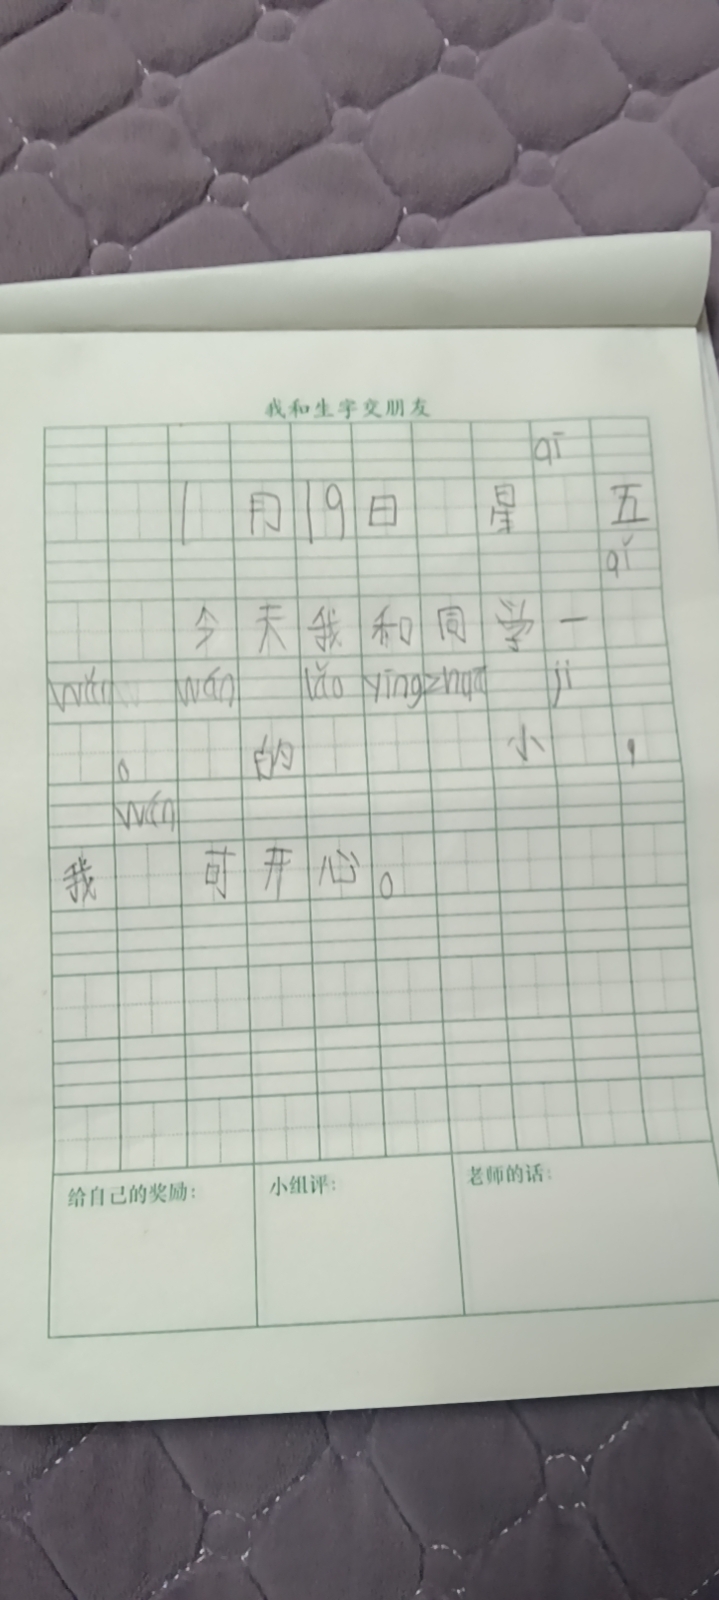 我和生字交朋友
qī
1月19日 星 五
qǐ
今天我和同学一
wán wán lǎo yīng zhuō jī
。 的 小 ，
wán
我 可开心。
给自己的奖励： 小组评： 老师的话：